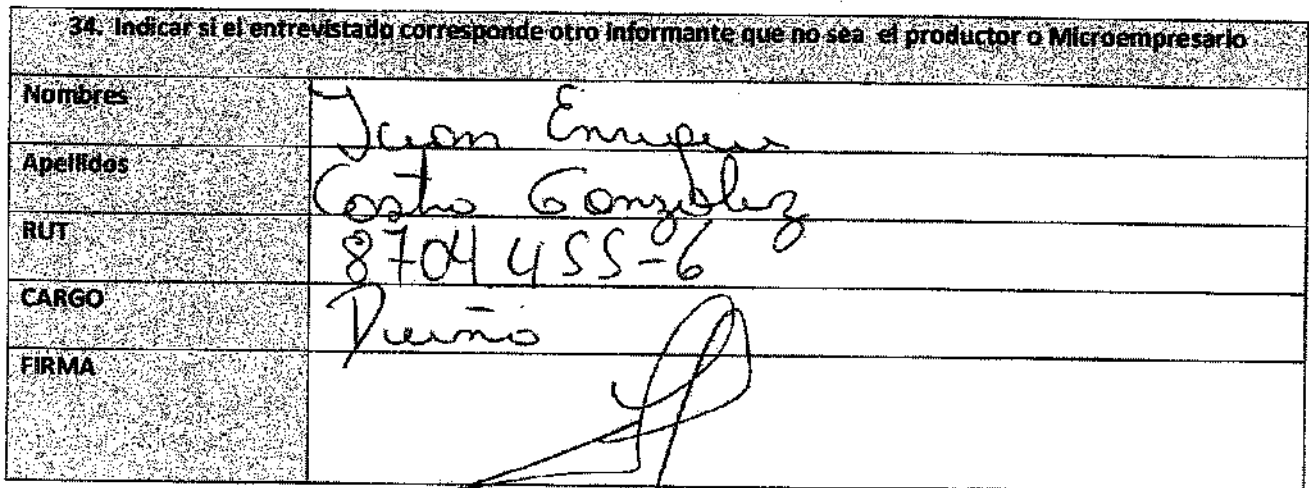 34. Indicar si el entrevistado corresponde otro informante que no sea el productor o Microempresario
Nombres Juan Enrique
Apellidos Castro González
RUT 8704455-6
CARGO Dueño
FIRMA